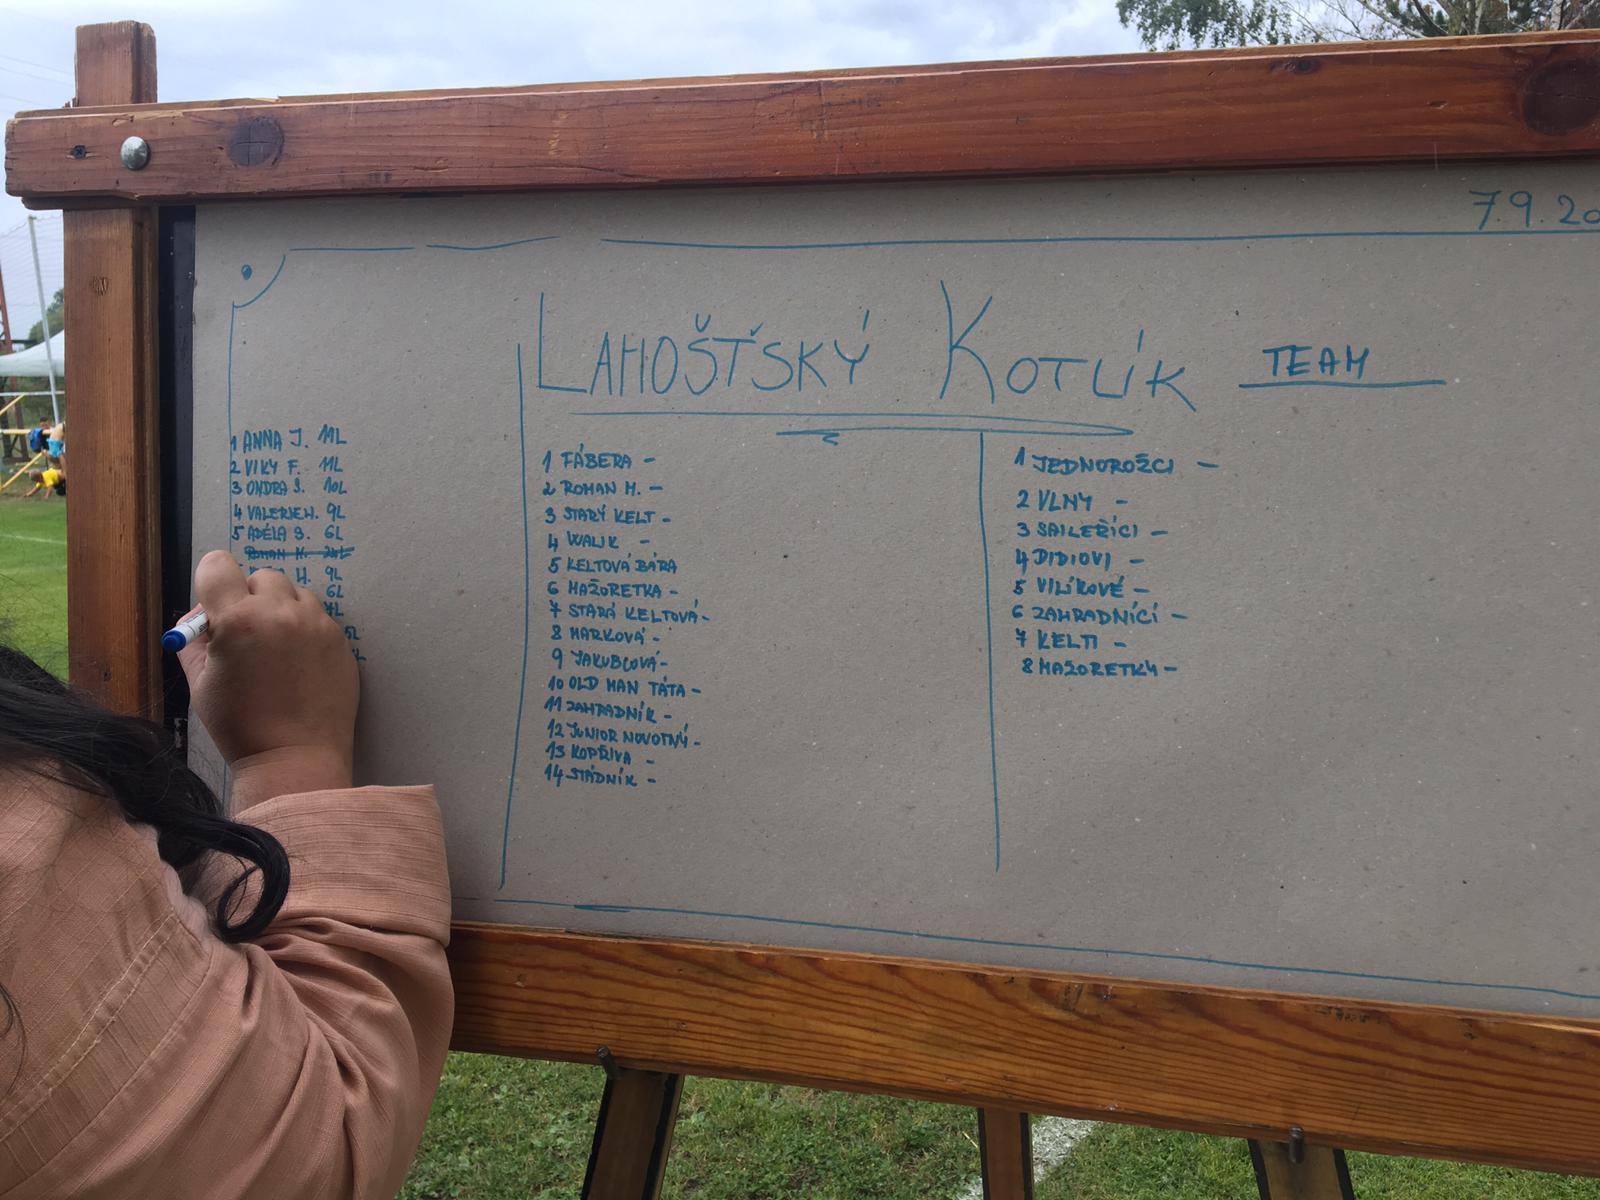 7.9.20
LAHOŠŤSKÝ KOTLÍK TEAM
1 ANNA J. 11L
2 VIKY F. 11L
3 ONDRA S. 10L
4 VALERIE H. 9L
5 ADÉLA S. 6L
H. 9L
6L
7L
1 FÁBERA -
2 ROMAN M. -
3 STARÝ KELT -
4 WALIK -
5 KELTOVÁ BÁRA
6 MAŽORETKA -
7 STARÁ KELTOVÁ -
8 MARKOVÁ -
9 JAKUBCOVÁ -
10 OLD MAN TÁTA -
11 ZAHRADNÍK -
12 JUNIOR NOVOTNÝ -
13 KOPŘIVA -
14 STÁDNÍK -
1 JEDNOROŽCI -
2 VLNY -
3 SAILEŘÍCI -
4 DIDIOVI -
5 VILÍKOVÉ -
6 ZAHRADNÍCÍ -
7 KELTI -
8 MAŽORETKY -